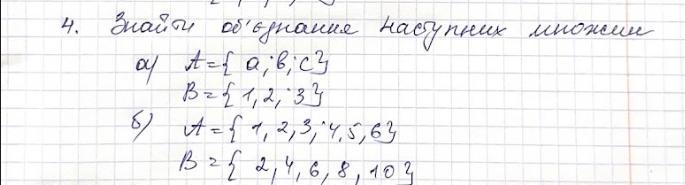 4. Знайти об'єднання наступних множин
а) A={ a; b; c}
B={ 1, 2, 3}
б) A={ 1, 2, 3, 4, 5, 6}
B={ 2, 4, 6, 8, 10}